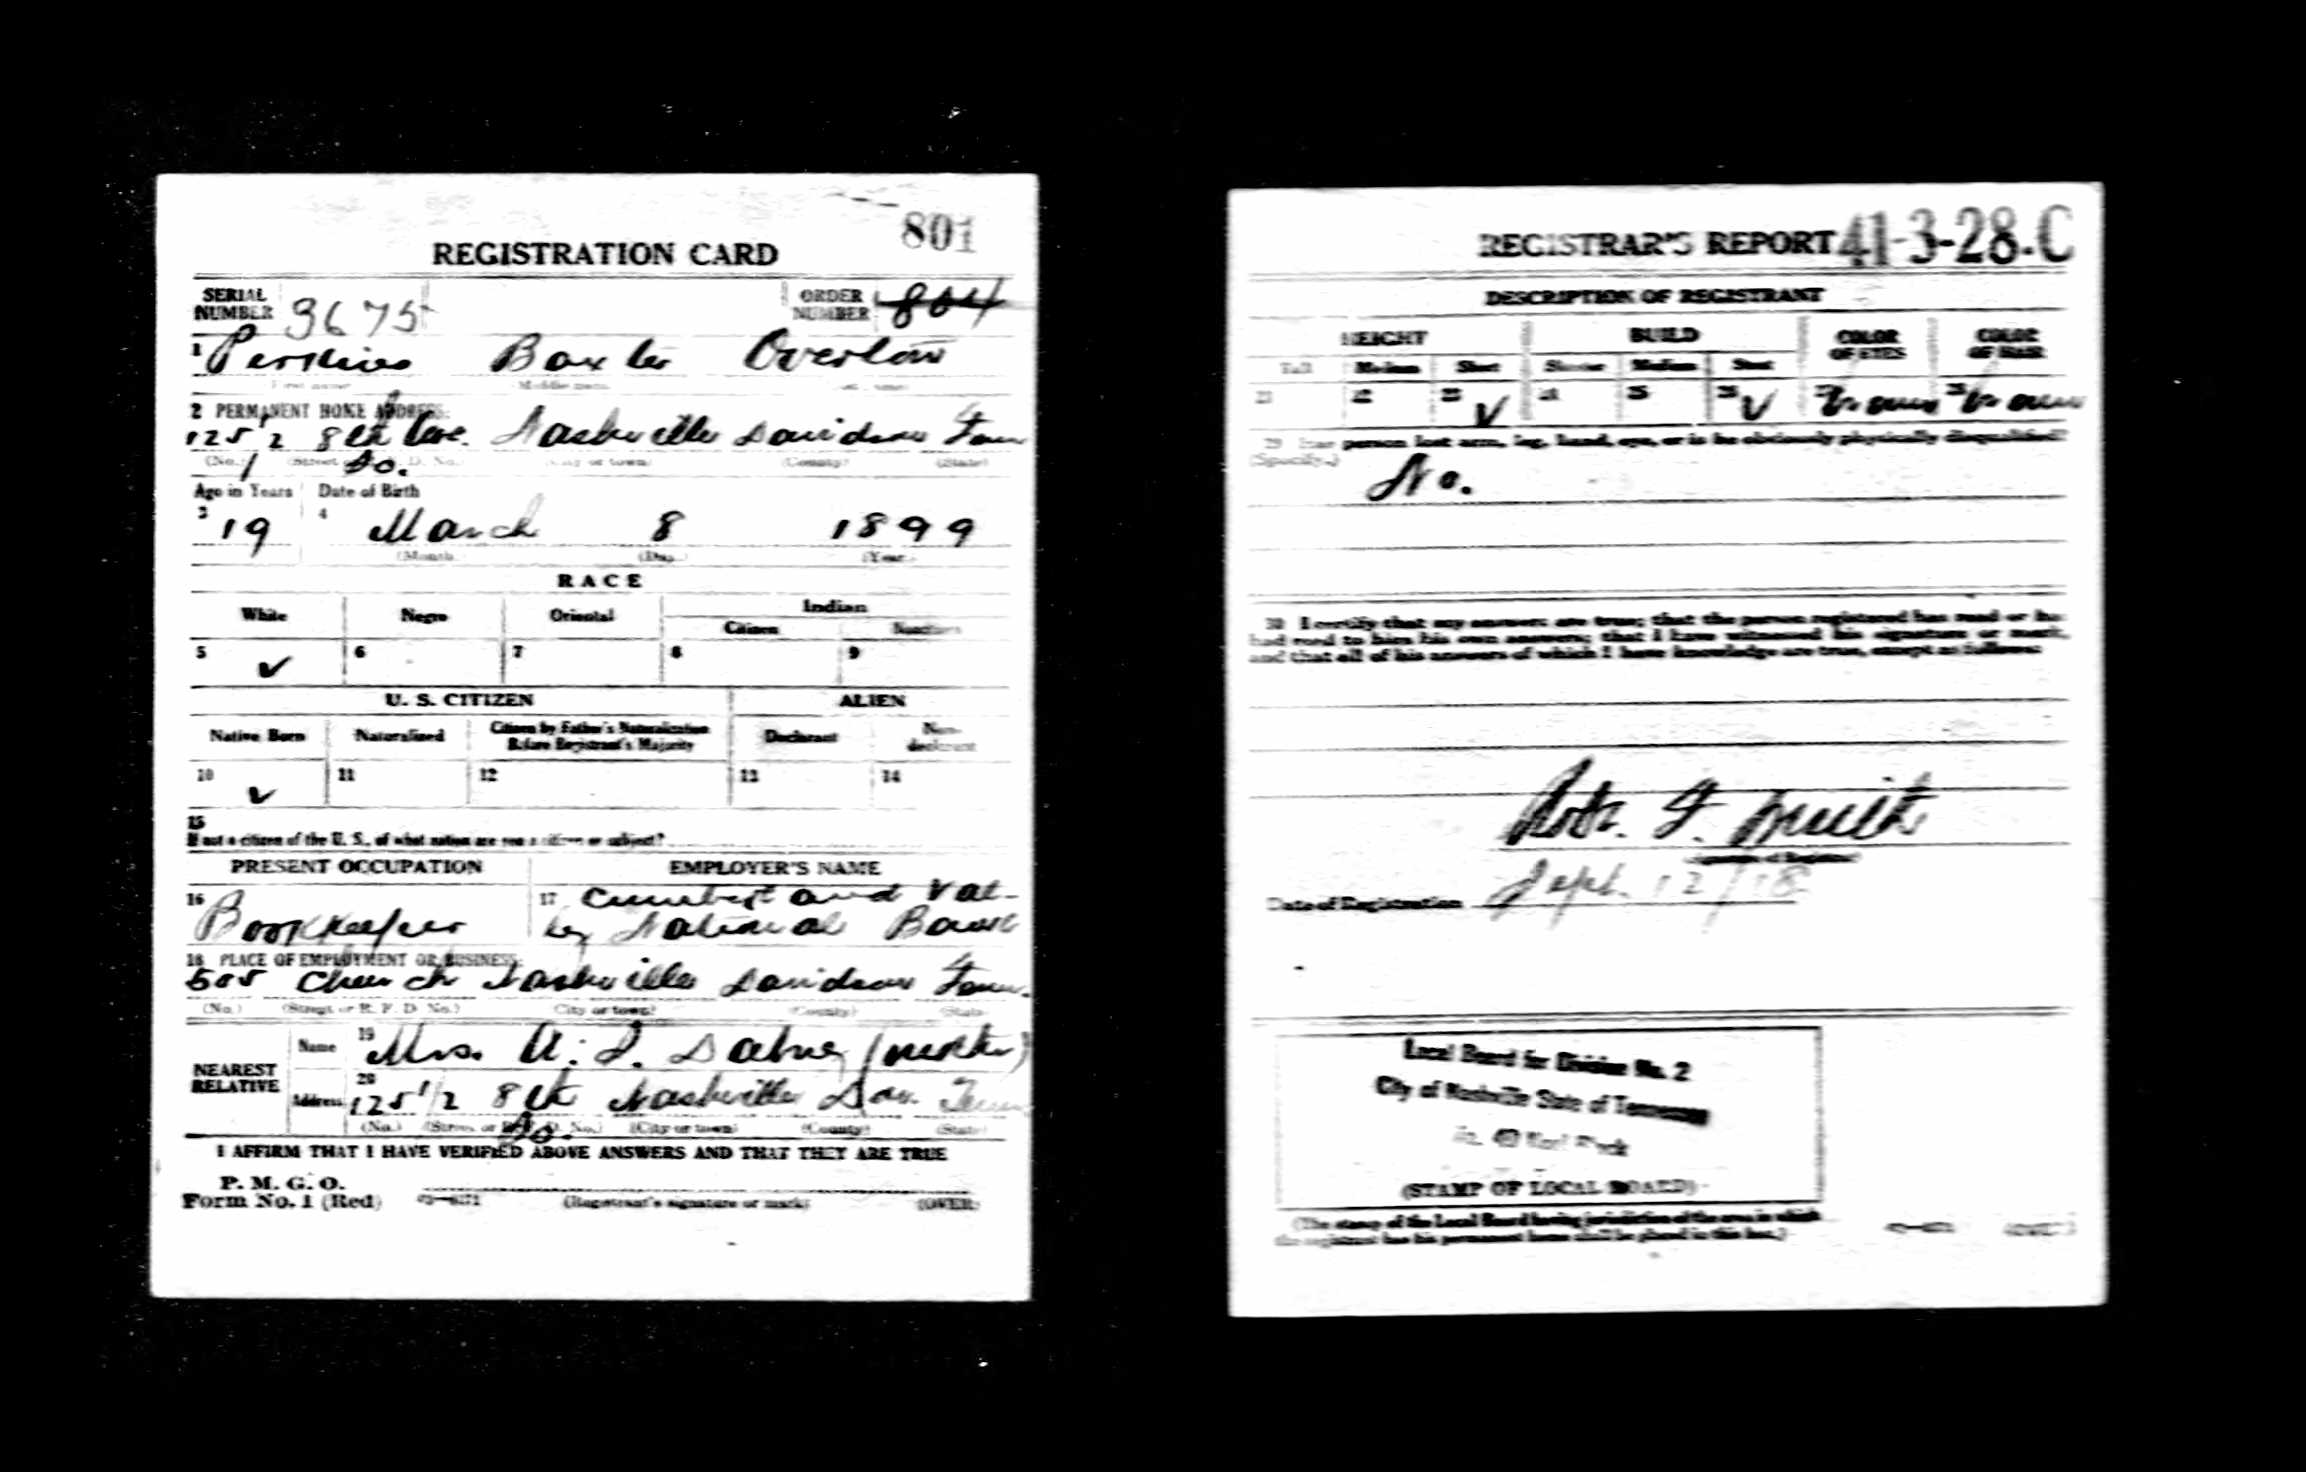 801
REGISTRATION CARD
SERIAL NUMBER 3675 ORDER NUMBER 804
1 Perkins Baxter Overton
First name Middle name Last name
2 PERMANENT HOME ADDRESS:
125 1/2 8th Ave. Nashville Davidson Tenn
(No.) (Street or R. F. D. No.) (City or town) (County) (State)
So.
Age in Years Date of Birth
3 19 4 March 8 1899
(Month) (Day) (Year)
RACE
White Negro Oriental Indian
Citizen Noncitizen
5 ✓ 6 7 8 9
U. S. CITIZEN ALIEN
Native Born Naturalized Citizen by Father's Naturalization Before Registrant's Majority Declarant Non-declarant
10 ✓ 11 12 13 14
15
If not a citizen of the U. S., of what nation are you a citizen or subject?
PRESENT OCCUPATION EMPLOYER'S NAME
16 Bookkeeper 17 Cumberland Val-
ley National Bank
18 PLACE OF EMPLOYMENT OR BUSINESS:
505 Church Nashville Davidson Tenn.
(No.) (Street or R. F. D. No.) (City or town) (County) (State)
NEAREST RELATIVE Name 19 Mrs. A. J. (mother)
Address 20 125 1/2 8th Nashville Dav. Tenn
(No.) (Street or R. F. D. No.) (City or town) (County) (State)
So.
I AFFIRM THAT I HAVE VERIFIED ABOVE ANSWERS AND THAT THEY ARE TRUE
P. M. G. O.
Form No. 1 (Red) (Registrant's signature or mark) (OVER)
REGISTRAR'S REPORT 41-3-28.C
DESCRIPTION OF REGISTRANT
HEIGHT BUILD COLOR OF EYES COLOR OF HAIR
Tall Medium Short Slender Medium Stout
21 22 23 ✓ 24 25 26 ✓ 27 Brown 28 Brown
29 Has person lost arm, leg, hand, eye, or is he obviously physically disqualified?
(Specify.)
No.
30 I certify that my answers are true; that the person registered has read or has
had read to him his own answers; that I have witnessed his signature or mark,
and that all of his answers of which I have knowledge are true, except as follows:
Robt. F. Smith
(Signature of Registrar)
Date of Registration Sept. 12/18
Local Board for Division No. 2
City of Nashville State of Tennessee
(STAMP OF LOCAL BOARD)
(The stamp of the Local Board having jurisdiction of the area in which
the registrant has his permanent home shall be placed in this box.)
(OVER)